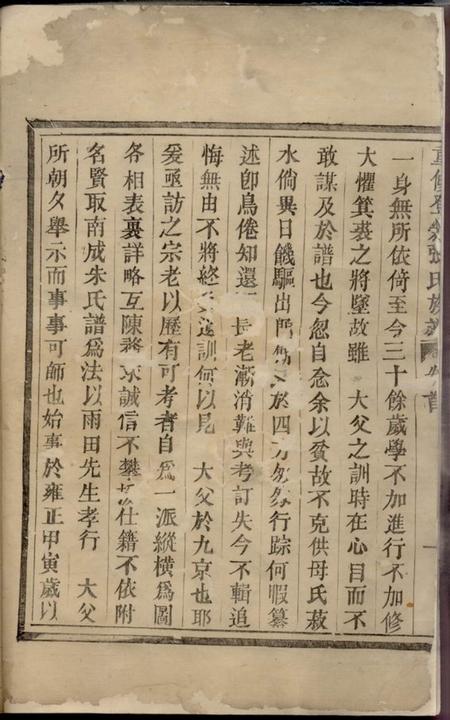 重修登榮張氏族譜 卷首
一身無所依倚至今三十餘歲學不加進行不加修
大懼箕裘之將墜故雖 大父之訓時在心目而不
敢謀及於譜也今忽自念余以貧故不克供母氏菽
水倘異日饑驅出門 於四方匆匆行踪何暇纂
述卽鳥倦知還 長老漸消難與考訂失今不輯追
悔無由不將終 訓何以見 大父於九京也耶
爰亟訪之宗老以歷有可考者自爲一派縱橫爲圖
各相表裏詳略互陳務求誠信不攀 仕籍不依附
名賢取南成朱氏譜爲法以雨田先生孝行 大父
所朝夕舉示而事事可師也始事於雍正甲寅歲以